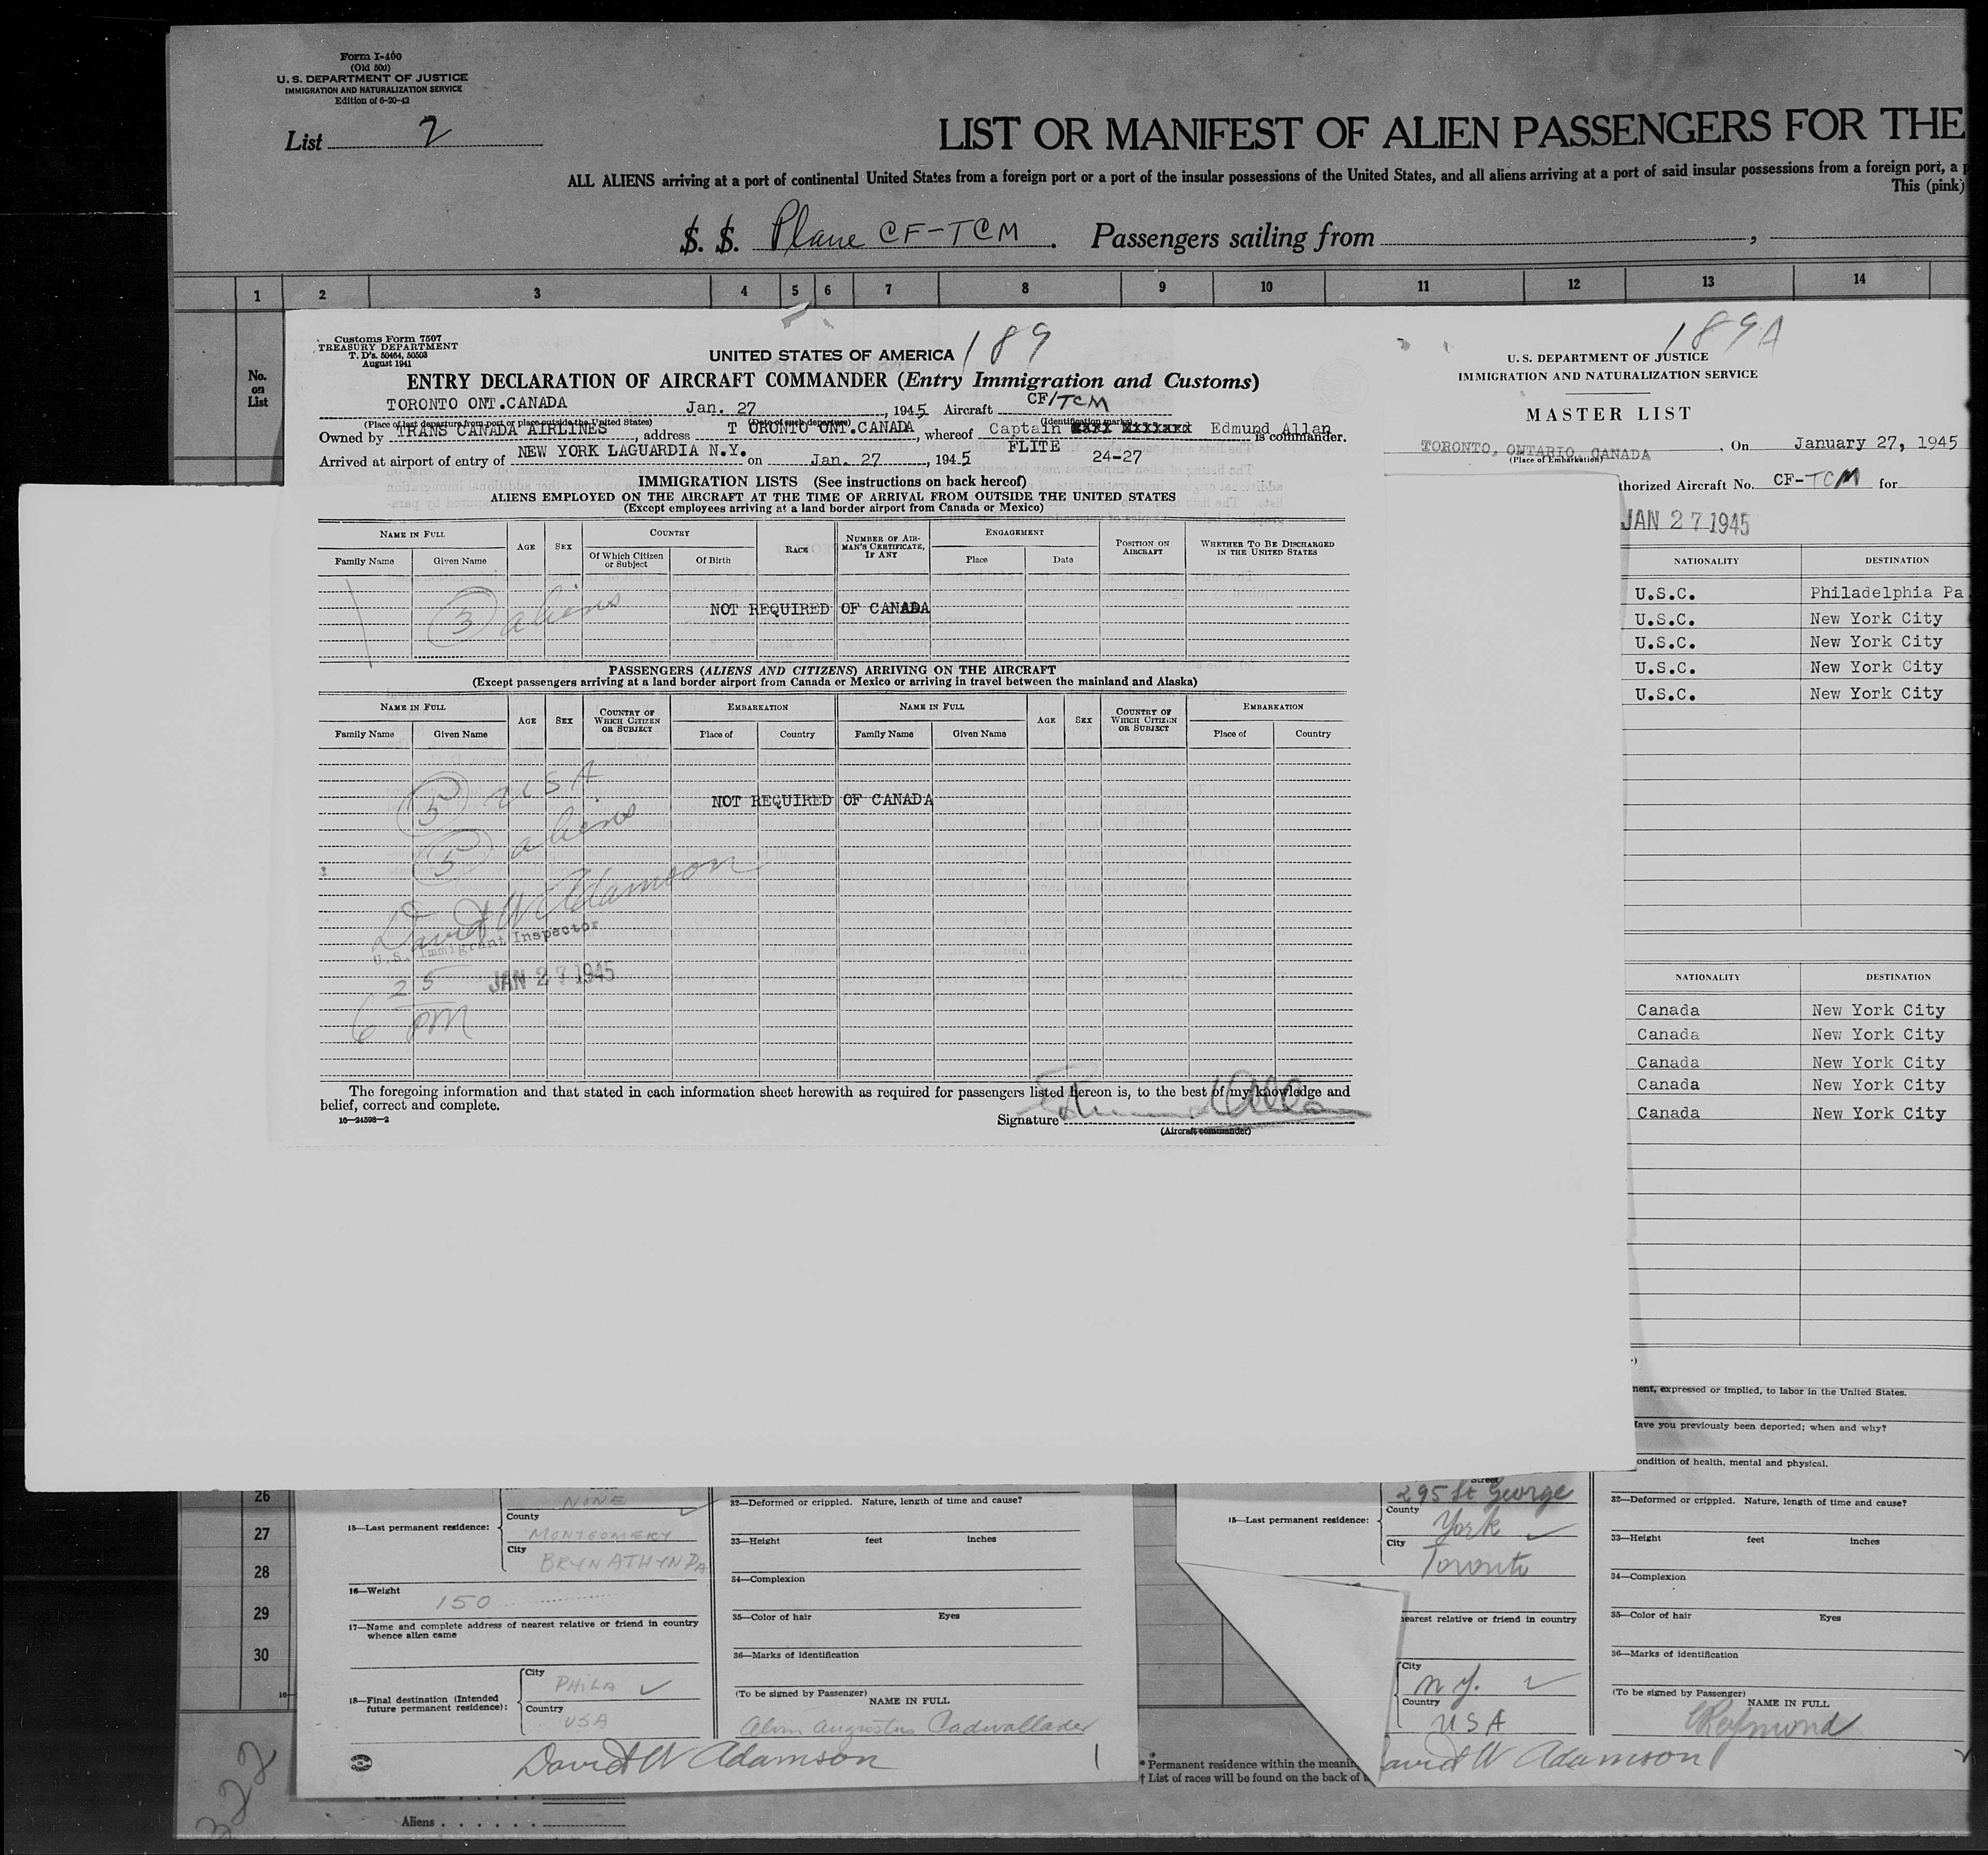 Form I-400
(Old 500)
U. S. DEPARTMENT OF JUSTICE
IMMIGRATION AND NATURALIZATION SERVICE
Edition of 6-20-42
List 2
LIST OR MANIFEST OF ALIEN PASSENGERS FOR THE
ALL ALIENS arriving at a port of continental United States from a foreign port or a port of the insular possessions of the United States, and all aliens arriving at a port of said insular possessions from a foreign port, a
This (pink)
S. S. Plane CF-TCM . Passengers sailing from ,
1 2 3 4 5 6 7 8 9 10 11 12 13 14
No. on List
Customs Form 7507
TREASURY DEPARTMENT
T. D's. 50464, 50503
August 1941
UNITED STATES OF AMERICA 189
ENTRY DECLARATION OF AIRCRAFT COMMANDER (Entry Immigration and Customs)
TORONTO ONT.CANADA Jan. 27 , 1945 Aircraft CF/TCM
(Place of last departure from port or place outside the United States) (Date of such departure) (Identification marks)
Owned by TRANS CANADA AIRLINES , address T ORONTO ONT.CANADA , whereof Captain Edmund Allan is commander.
Arrived at airport of entry of NEW YORK LAGUARDIA N.Y. on Jan. 27 , 1945 FLITE 24-27
IMMIGRATION LISTS (See instructions on back hereof)
ALIENS EMPLOYED ON THE AIRCRAFT AT THE TIME OF ARRIVAL FROM OUTSIDE THE UNITED STATES
(Except employees arriving at a land border airport from Canada or Mexico)
NAME IN FULL AGE SEX COUNTRY RACE NUMBER OF AIRMAN'S CERTIFICATE, IF ANY ENGAGEMENT POSITION ON AIRCRAFT WHETHER TO BE DISCHARGED IN THE UNITED STATES
Family Name Given Name Of Which Citizen or Subject Of Birth Place Date
3 aliens
NOT REQUIRED OF CANADA
PASSENGERS (ALIENS AND CITIZENS) ARRIVING ON THE AIRCRAFT
(Except passengers arriving at a land border airport from Canada or Mexico or arriving in travel between the mainland and Alaska)
NAME IN FULL AGE SEX COUNTRY OF WHICH CITIZEN OR SUBJECT EMBARKATION NAME IN FULL AGE SEX COUNTRY OF WHICH CITIZEN OR SUBJECT EMBARKATION
Family Name Given Name Place of Country Family Name Given Name Place of Country
5 USA
NOT REQUIRED OF CANADA
5 aliens
David W Adamson
U.S. Immigrant Inspector
JAN 27 1945
6 25 PM
The foregoing information and that stated in each information sheet herewith as required for passengers listed hereon is, to the best of my knowledge and
belief, correct and complete.
16—24598—2
Signature Edmund Allan
(Aircraft commander)
189A
U. S. DEPARTMENT OF JUSTICE
IMMIGRATION AND NATURALIZATION SERVICE
MASTER LIST
TORONTO, ONTARIO, CANADA , On January 27, 1945
(Place of Embarkation)
thorized Aircraft No. CF-TCM for
JAN 27 1945
NATIONALITY DESTINATION
U.S.C. Philadelphia Pa
U.S.C. New York City
U.S.C. New York City
U.S.C. New York City
U.S.C. New York City
NATIONALITY DESTINATION
Canada New York City
Canada New York City
Canada New York City
Canada New York City
Canada New York City
ment, expressed or implied, to labor in the United States.
Have you previously been deported; when and why?
ondition of health, mental and physical.
26
27
28
29
30
NONE
15—Last permanent residence:
County
MONTGOMERY
City
BRYN ATHYN PA
16—Weight
150
17—Name and complete address of nearest relative or friend in country
whence alien came
18—Final destination (Intended
future permanent residence):
City
PHILA
Country
USA
32—Deformed or crippled. Nature, length of time and cause?
33—Height feet inches
34—Complexion
35—Color of hair Eyes
36—Marks of identification
(To be signed by Passenger)
NAME IN FULL
Alvin Augustus Cadwallader
David W Adamson 1
Street
295 St George
15—Last permanent residence:
County
York
City
Toronto
nearest relative or friend in country
City
N.Y.
Country
USA
32—Deformed or crippled. Nature, length of time and cause?
33—Height feet inches
34—Complexion
35—Color of hair Eyes
36—Marks of identification
(To be signed by Passenger)
NAME IN FULL
avid W Adamson
* Permanent residence within the meanin
† List of races will be found on the back of
322
Aliens